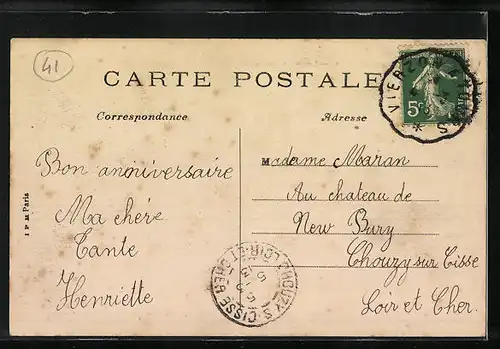 41
CARTE POSTALE
Correspondance
Adresse
5c
VIERZON
Bon anniversaire
Ma chère
Tante
Henriette
Madame Maran
Au chateau de
New Bury
Chouzy sur Cisse
Loir et Cher.
CHOUZY-S-CISSE
LOIR-ET-CHER
Paris